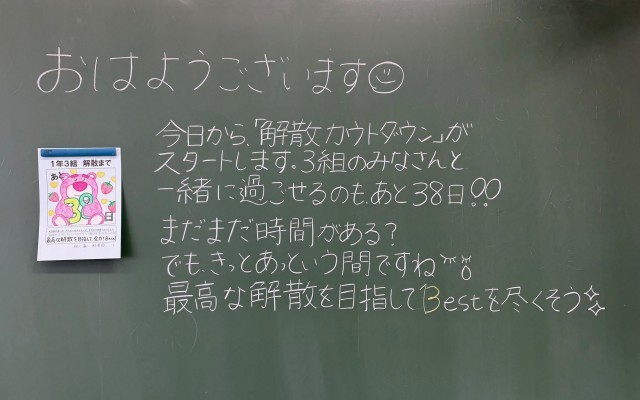 おはようございます
今日から、「解散カウトダウン」が
スタートします。3組のみなさんと
一緒に過ごせるのも、あと38日!!
まだまだ時間がある?
でも、きっとあっという間ですね
最高な解散を目指してBestを尽くそう
1年3組 解散まで
あと
38
日